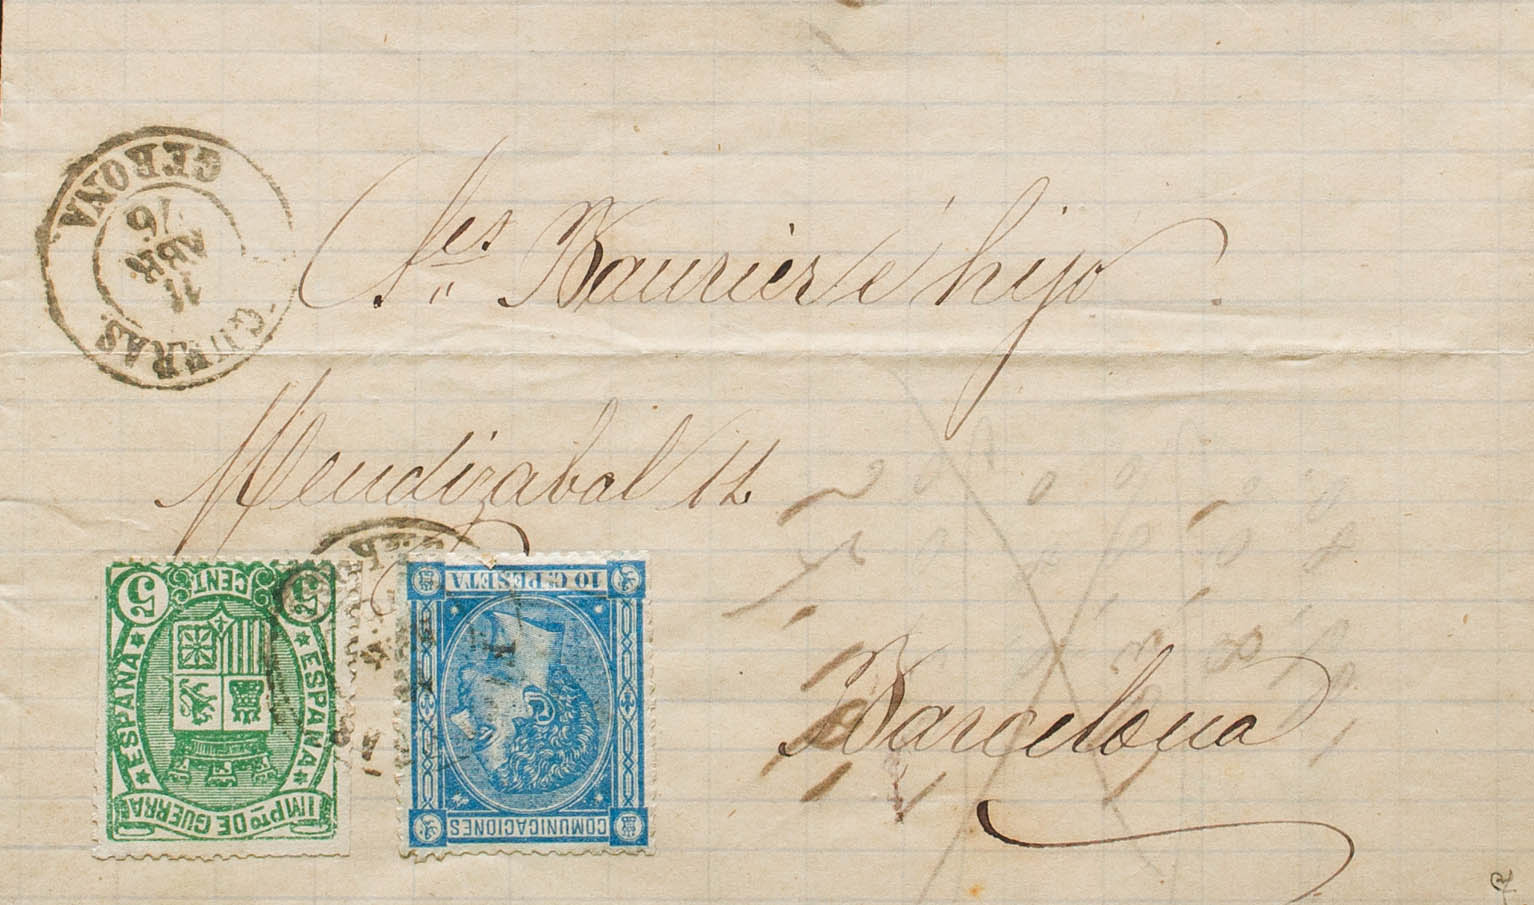 GERONA
11
ABR
76
Sres Baurier é hijo
Mendizabal 12
Barcelona
5 CENT. 5
ESPAÑA
ESPAÑA
IMPTO DE GUERRA
10 C. PESETA
COMUNICACIONES